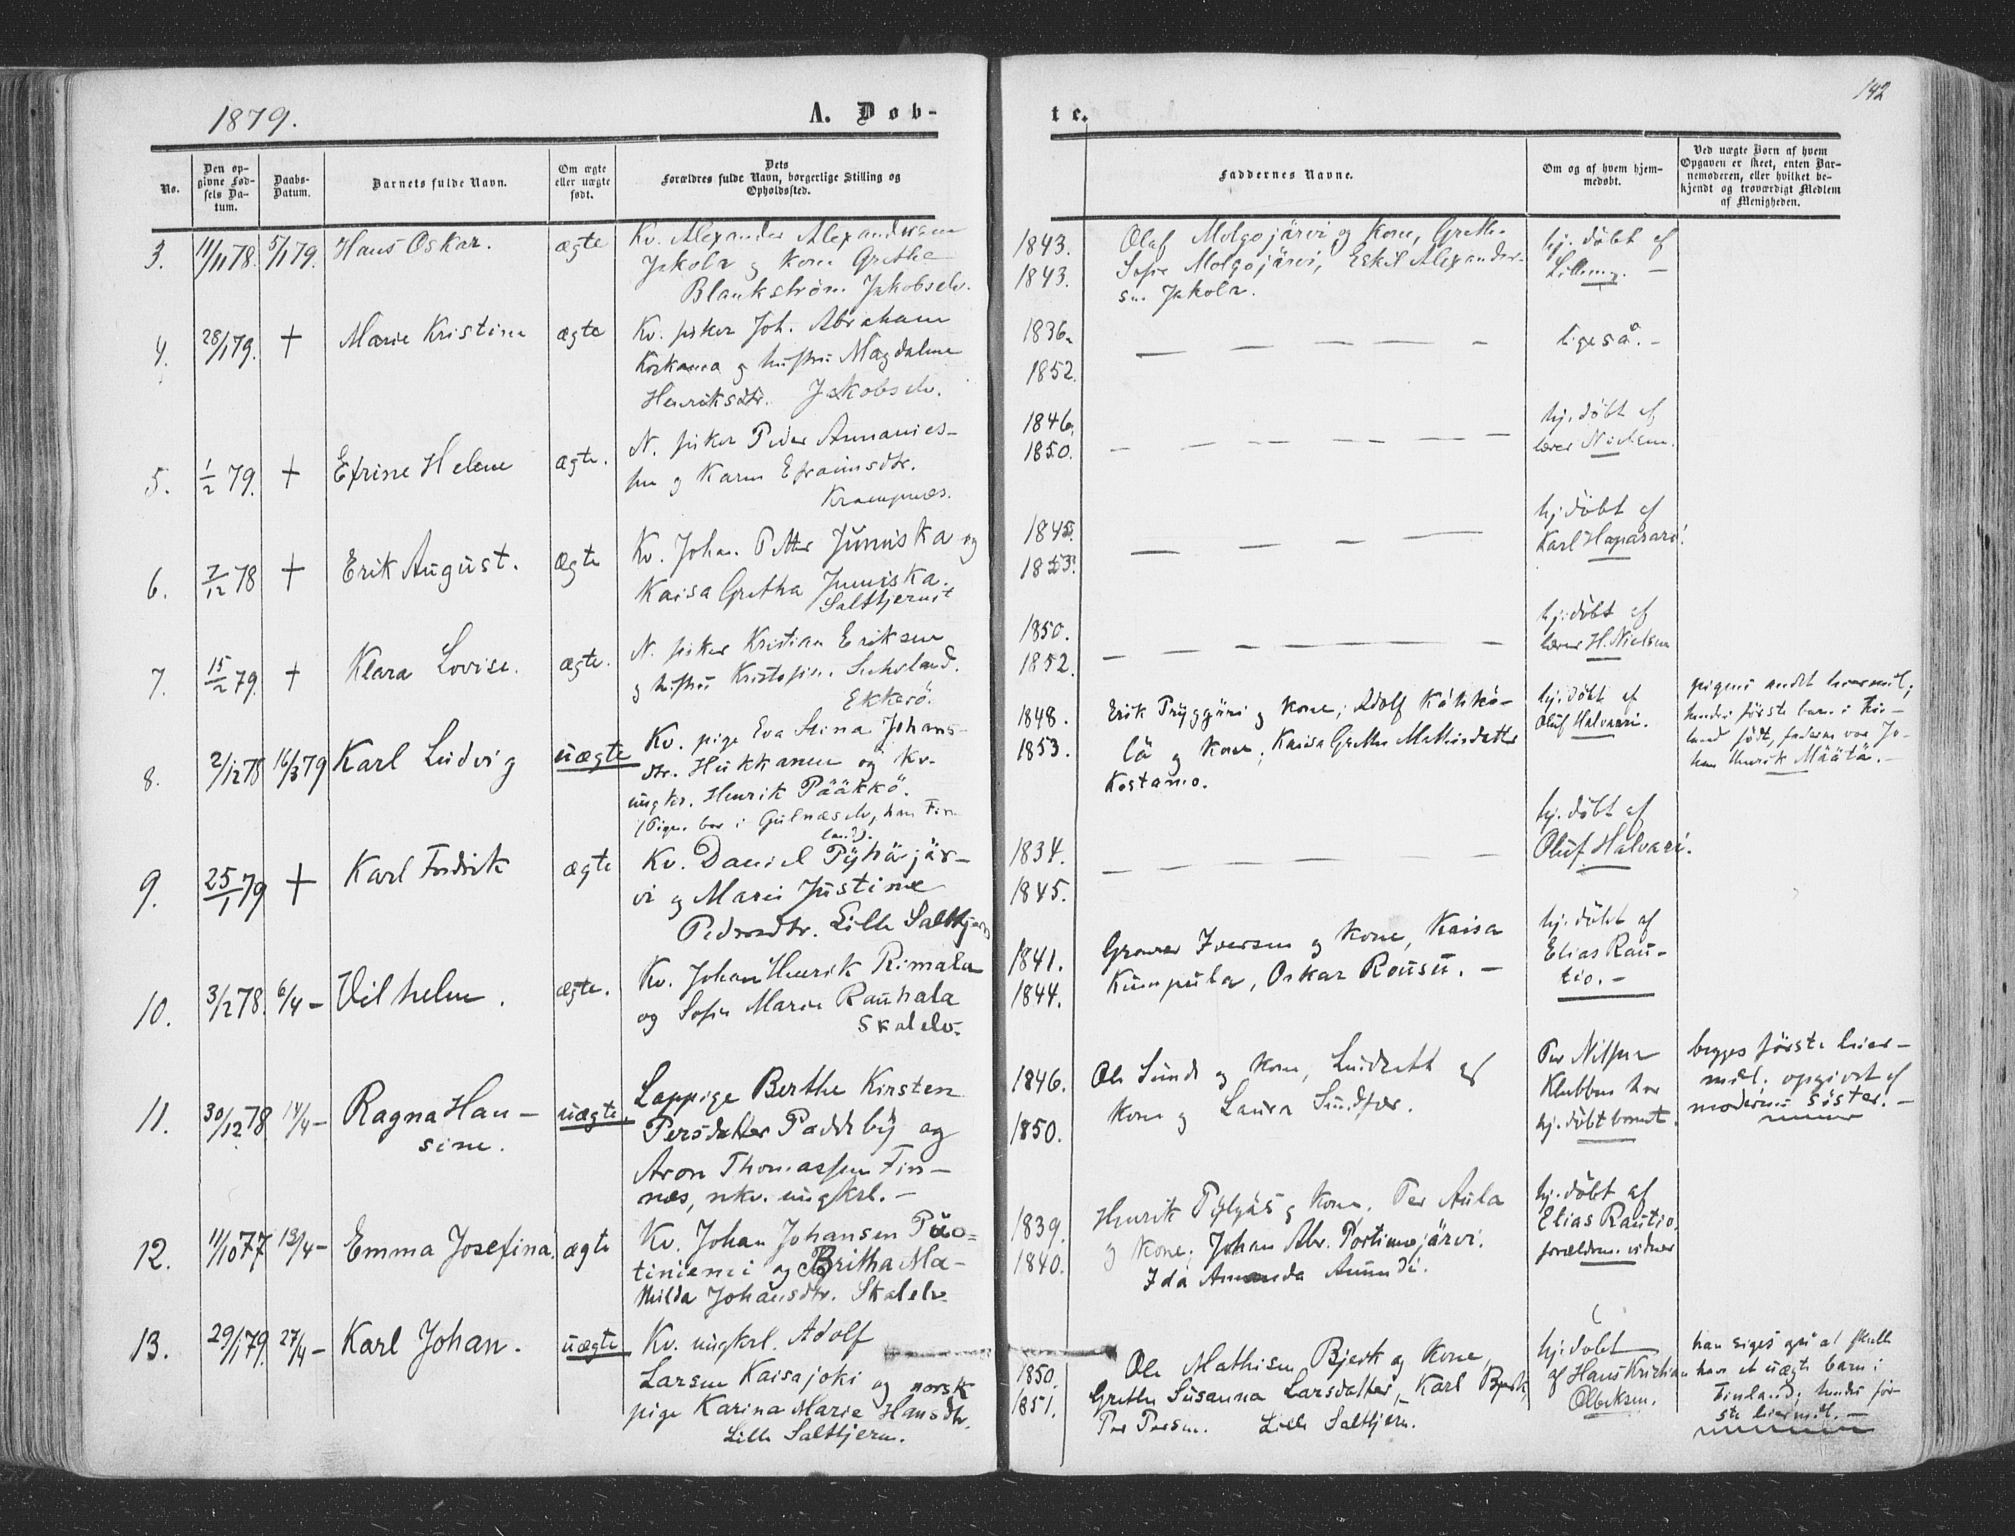 1879.
A. Døb-
te.
142
No.
Den op-
givne Fød-
sels Da-
tum.
Daabs-
Datum.
Barnets fulde Navn.
Om ægte
eller uægte
født.
Dets
Forældres fulde Navn, borgerlige Stilling og
Opholdssted.
Faddernes Navne.
Om og af hvem hjem-
medøbt.
Ved uægte Børn af hvem
Opgaven er skeet, enten Bar-
nemoderen, eller hvilket be-
kjendt og troværdigt Medlem
af Menigheden.
3.
11/11 78.
5/1 79.
Hans Oskar.
ægte
Kv. Alexander Alexandersen
Jakola og kone Grethe
Blankström Jakobselv.
1843.
1843.
Olaf Molgojärvi og kone, Grethe
Sofie Molgojärvi, Eskil Alexander-
sn. Jakola.
hj. døbt af
4.
28/1 79.
+
Marie Kristine
ægte
Kv. fisker Joh. Abraham
Koskama og hustru Magdalene
Henriksdtr. Jakobselv.
1836.
1852.
— — — — — —
ligeså. –
5.
1/2 79.
+
Efrine Helene
ægte.
N. fisker Peder Annanies-
sen og Karen Efraimsdtr.
Krampenæs.
1846.
1850.
— — — — — —
hj. døbt af
lærer Nielsen.
6.
7/12 78
+
Erik August.
ægte
Kv. Johan Petter Juniska og
Kaisa Gretha Juniska.
Saltfjernit
1845.
1853.
— — — — — —
hj. døbt af
Karl Haparari.
7.
15/2 79.
+
Klara Lovise.
ægte.
N. fisker Kristian Eriksen
og hustru Kristofine
Ekkerö.
1850.
1852.
— — — — — —
hj. døbt af
lærer H. Nielsen
8.
2/12 78
16/3 79
Karl Ludvig
uægte
Kv. pige Eva Stina Johans-
dtr. Hukkanen og Kv.
ungkr. Henrik Pääkkö.
(Pigen bor i Gulnæselv, han Fin-
land).
1848.
1853.
Erik Pryggjäri og kone; Adolf Kähkö-
lä og kone; Kaisa Grethe Mathisdatter
Kostamo.
hj. døbt af
Oluf Halvari.
pigens andet leiermål;
hendes første barn i Fin-
land født, faderen var Jo-
han Henrik Määtä. –
9.
25/1 79
+
Karl Fredrik
ægte
Kv. Daniel Pyhäjär-
vi og Marie Justine
Pedersdtr. Lille Saltfjern
1834.
1845.
— — — — — —
hj. døbt af
Oluf Halvari.
10.
3/12 78.
6/4 –
Vilhelm.
ægte.
Kv. Johan Henrik Rimala
og Sofie Marie Rauhala
Skalelv.
1841.
1844.
Iversen og kone, Kaisa
Kumpula, Oskar Rousu. –
hj. døbt af
Elias Rau-
tio. –
11.
30/12 78
14/4 –
Ragna Han-
sine.
uægte.
Lappige Berthe Kirsten
Persdatter Paddeby og
Aron Thomassen Fin-
næs, nkv. ungkrl. –
1846.
1850.
Ole Sunde og kone, og
kone og Laura Sundfær.
Per Nilsen
Klubben har
hj. døbt barnet.
begges første leier-
mål. opgivet af
moderens søster. –
12.
11/10 77
13/4 –
Emma Josefina.
ægte
Kv. Johan Johansen Puo-
tiniemi og Britha Ma-
thilda Johansdtr. Skalelv.
1839.
1840.
Henrik og kone. Per Aula
og kone; Johan Abr. Portimojärvi.
Ida Amanda
hj. døbt af
Elias Rautio,
forældrene vidner
13.
29/1 79.
27/4 –
Karl Johan.
uægte
Kv. ungkrl. Adolf
Larsen Kaisajoki og norsk
pige Karina Marie Hansdtr.
Lille Saltfjern.
1850.
1851.
Ole Mathisen Bjerk og kone,
Grethe Susanna Larsdatter, Karl Bjerk,
Per Persen. Lille Saltfjern.
hj. døbt
af Hans Kristian
Olbeksen.
han siges også at skulle
have et uægte barn i
Finland; hendes før-
ste leiermål. –